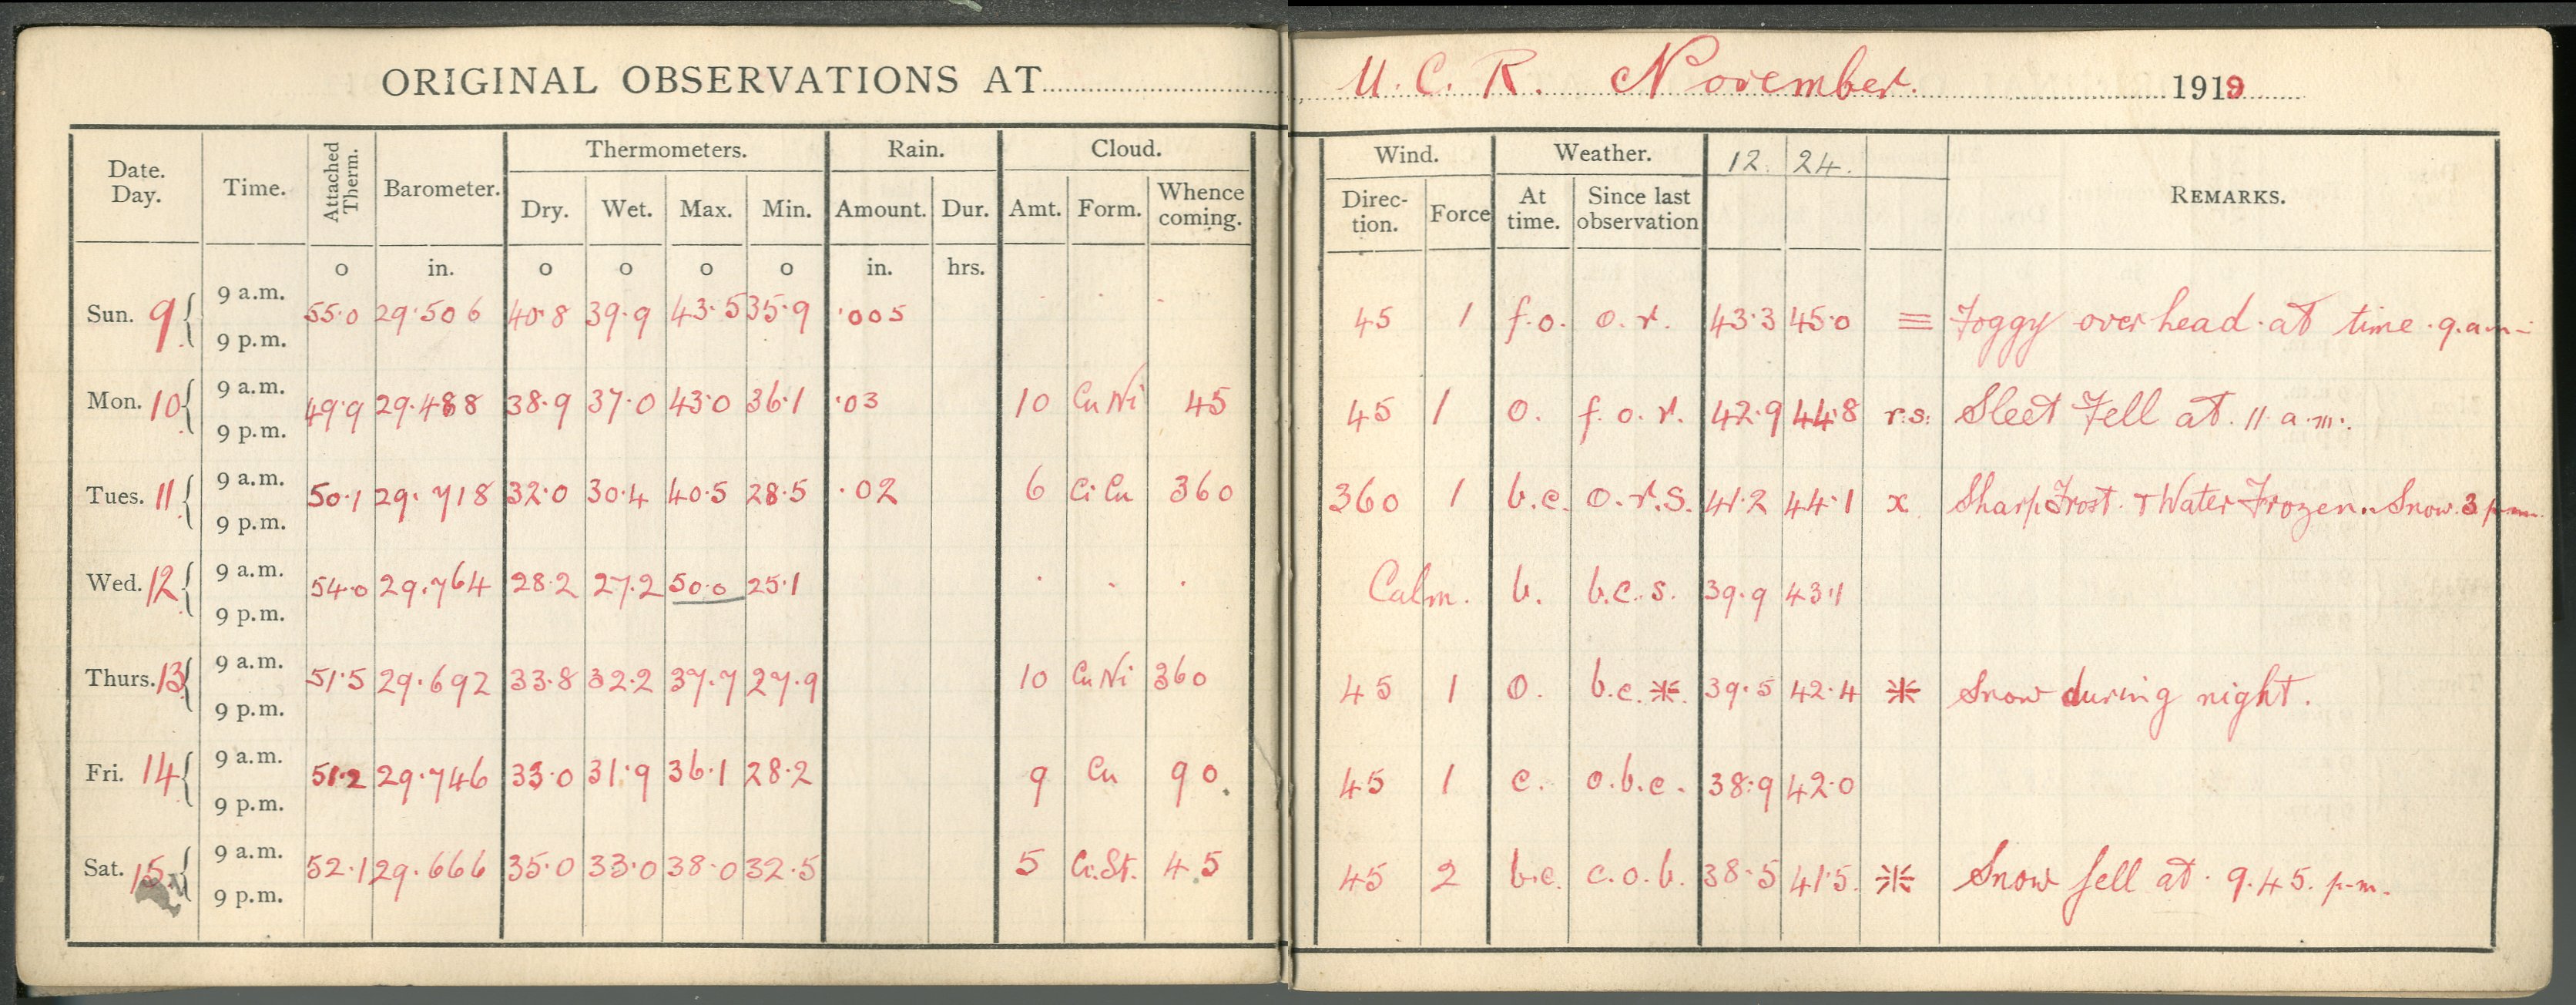 ORIGINAL OBSERVATIONS AT U. C. R. November. 1919
Date. Day. Time. Attached Therm. Barometer. Thermometers. Rain. Cloud. Wind. Weather. 12. 24. REMARKS.
Dry. Wet. Max. Min. Amount. Dur. Amt. Form. Whence coming. Direc- tion. Force At time. Since last observation
o in. o o o o in. hrs.
Sun. 9 { 9 a.m. 9 p.m. 55.0 29.506 40.8 39.9 43.5 35.9 .005 45 1 f.o. o.r. 43.3 45.0 ≡ Foggy over head. at time. 9.a.m.
Mon. 10 { 9 a.m. 9 p.m. 49.9 29.488 38.9 37.0 43.0 36.1 .03 10 Cu Ni 45 45 1 o. f.o.r. 42.9 44.8 r.s. Sleet Fell at. 11 a.m.
Tues. 11 { 9 a.m. 9 p.m. 50.1 29.718 32.0 30.4 40.5 28.5 .02 6 Ci Cu 360 360 1 b.c. o.r.s. 41.2 44.1 x Sharp Frost. + Water Frozen.. Snow. 3 p.m.
Wed. 12 { 9 a.m. 9 p.m. 54.0 29.764 28.2 27.2 50.0 25.1 . . . Calm. b. b.c.s. 39.9 43.1
Thurs. 13 { 9 a.m. 9 p.m. 51.5 29.692 33.8 32.2 37.7 27.9 10 Cu Ni 360 45 1 o. b.c.✳. 39.5 42.4 ✳ Snow during night.
Fri. 14 { 9 a.m. 9 p.m. 51.2 29.746 33.0 31.9 36.1 28.2 9 Cu 90. 45 1 c. o.b.c. 38.9 42.0
Sat. 15 { 9 a.m. 9 p.m. 52.1 29.666 35.0 33.0 38.0 32.5 5 Ci.St. 45 45 2 b.c. c.o.b. 38.5 41.5. ✳ Snow fell at. 9.45. p.m.